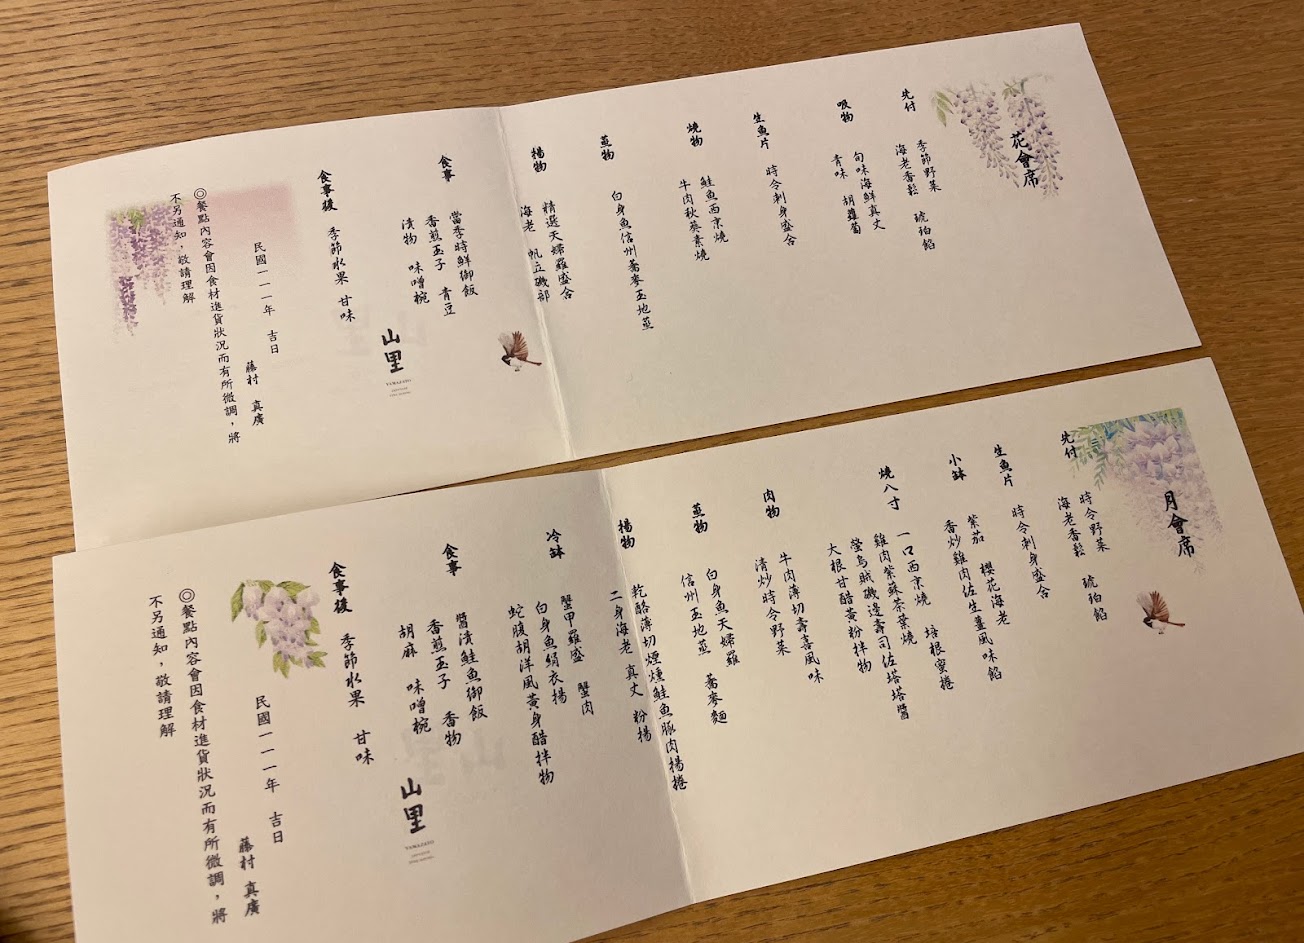 花會席
先付
季節野菜 琥珀餡
海老香鬆
吸物
旬味海鮮真丈
青味 胡蘿蔔
生魚片
時令刺身盛合
燒物
鮭魚西京燒
牛肉秋葵素燒
蒸物
白身魚信州蕎麥玉地蒸
揚物
精選天婦羅盛合
海老 帆立磯部
食事
當季時鮮御飯
香煎玉子 青豆
漬物 味噌椀
食事後
季節水果 甘味
山里
YAMAZATO
民國一一一年 吉日
藤村 真廣
◎餐點內容會因食材進貨狀況而有所微調，將
不另通知，敬請理解
月會席
先付
時令野菜 琥珀餡
海老香鬆
生魚片
時令刺身盛合
小缽
紫茄 櫻花海老
香炒雞肉佐生薑風味餡
燒八寸
一口西京燒 培根蜜捲
雞肉紫蘇茶葉燒
螢烏賊磯邊壽司佐塔塔醬
大根甘醋黃粉拌物
肉物
牛肉薄切壽喜風味
清炒時令野菜
蒸物
白身魚天婦羅 蕎麥麵
信州玉地蒸
揚物
乾酪薄切煙燻鮭魚豚肉揚捲
二身海老 真丈 粉揚
冷缽
蟹甲羅盛 蟹肉
白身魚絹衣揚
蛇腹胡洋風黃身醋拌物
食事
醬漬鮭魚御飯
香煎玉子 香物
胡麻 味噌椀
食事後
季節水果 甘味
山里
YAMAZATO
民國一一一年 吉日
藤村 真廣
◎餐點內容會因食材進貨狀況而有所微調，將
不另通知，敬請理解